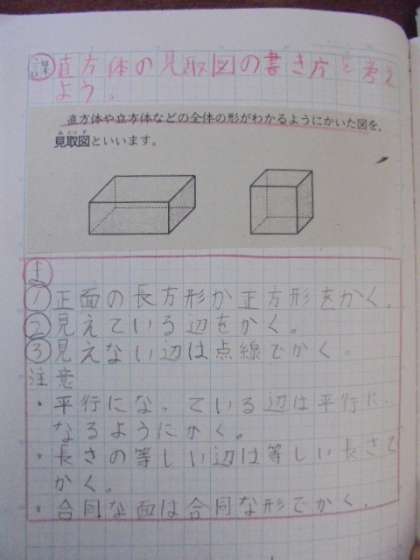 課 直方体の見取図の書き方を考え
よう。
直方体や立方体などの全体の形がわかるようにかいた図を、
見取図といいます。
ま
① 正面の長方形か正方形をかく。
② 見えている辺をかく。
③ 見えない辺は点線でかく。
注意
・平行になっている辺は平行に
なるようにかく。
・長さの等しい辺は等しい長さで
かく。
・合同な面は合同な形でかく。